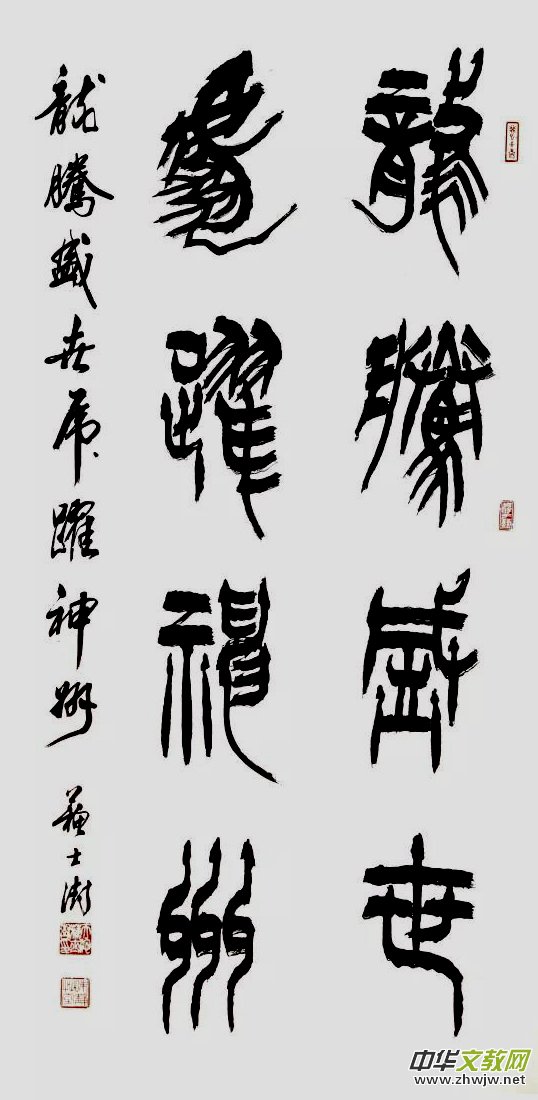 龍騰盛世
虎躍神州
龍騰盛世虎躍神州
蘇士澍
中华文教网
www.zhwjw.net